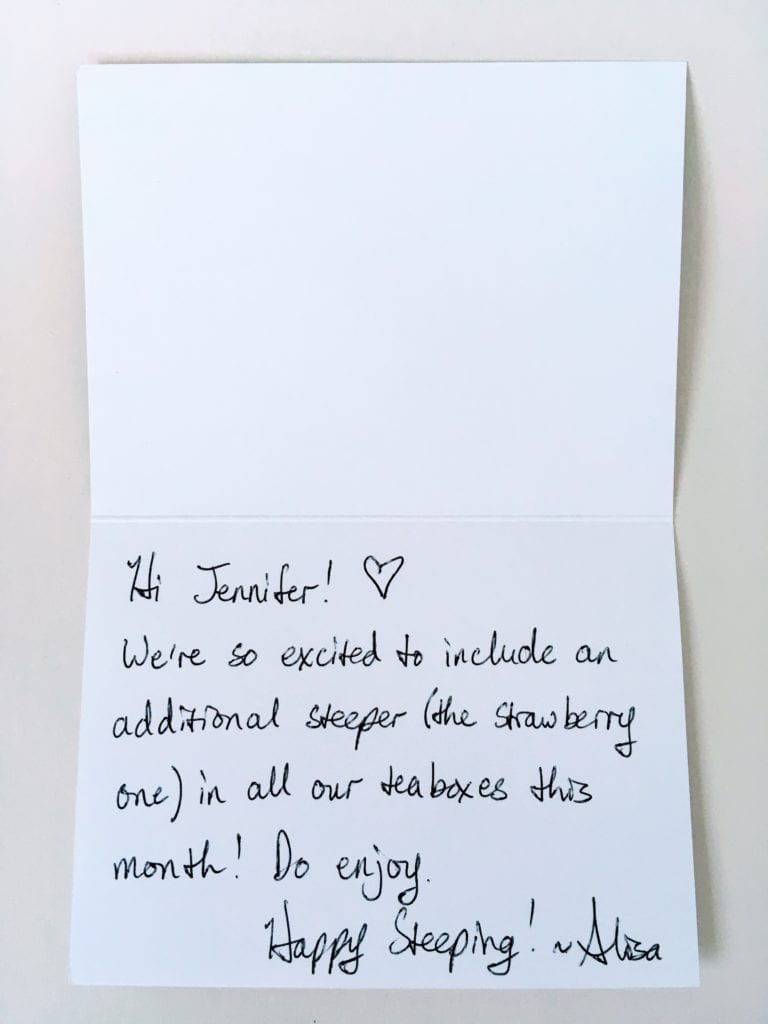 Hi Jennifer! ♡
We're so excited to include an
additional steeper (the strawberry
one) in all our teaboxes this
month! Do enjoy.
Happy Steeping! ~Alisa